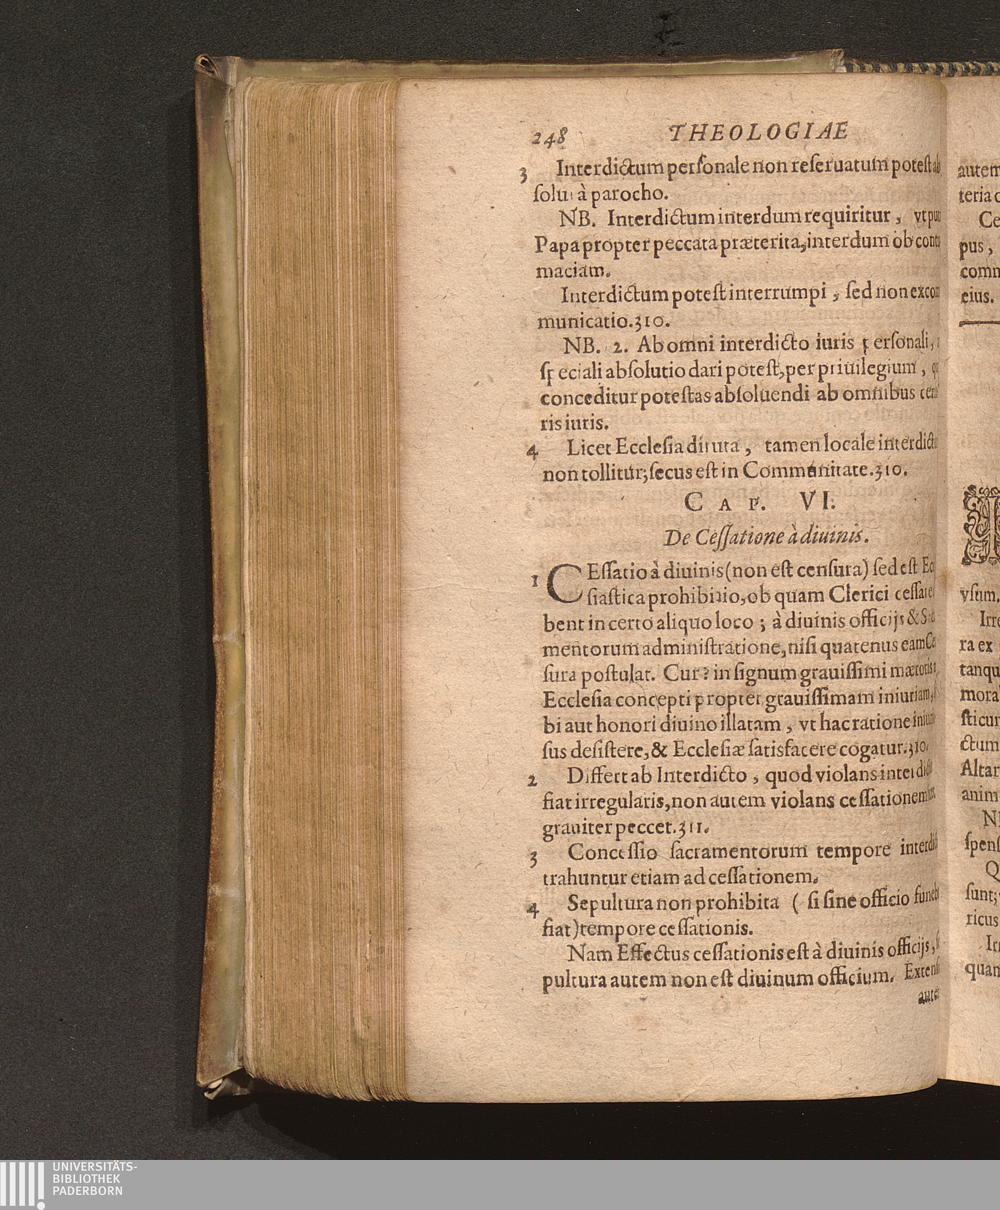 248 THEOLOGIAE
3 Interdictum personale non reseruatum potest ab
solui à parocho.
NB. Interdictum interdum requiritur, vt
Papa propter peccata præterita, interdum ob contu
maciam.
Interdictum potest interrumpi, sed non excom
municatio. 310.
NB. 2. Ab omni interdicto iuris personali,
speciali absolutio dari potest, per priuilegium,
conceditur potestas absoluendi ab omnibus
ris iuris.
4 Licet Ecclesia diruta, tamen locale interdictu
non tollitur; secus est in Communitate. 310.
CAP. VI.
De Cessatione à diuinis.
1 CEssatio à diuinis (non est censura) sed est Ec
siastica prohibitio, ob quam Clerici cessare
bent in certo aliquo loco; à diuinis officijs & S
mentorum administratione, nisi quatenus eam
sura postulat. Cur? in signum grauissimi mæroris
Ecclesia concepti propter grauissimam iniuriam,
bi aut honori diuino illatam, vt hac ratione iniu
sus desistere, & Ecclesiæ satisfacere cogatur. 310.
2 Differt ab Interdicto, quod violans interdict
fiat irregularis, non autem violans cessationem
grauiter peccet. 311.
3 Concessio sacramentorum tempore interdict
trahuntur etiam ad cessationem.
4 Sepultura non prohibita (si sine officio funeb
fiat) tempore cessationis.
Nam Effectus cessationis est à diuinis officijs,
pultura autem non est diuinum officium. Extens
autem
autem
teria
Ce
pus,
comm
eius.
vsum.
Irre
ra ex
tanqu
mora
sticur
ctum
Altar
anim
NB
spens
Q
sunt;
ricus
Irr
quan
UNIVERSITÄTS-
BIBLIOTHEK
PADERBORN